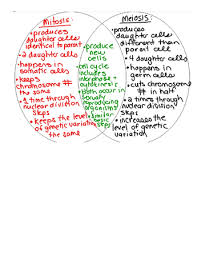 Mitosis
• produces
daughter cells
identical to parent
• 2 daughter cells
• happens in
somatic cells
• keeps
chromosome #
the same
• 1 time through
nuclear division
steps
• keeps the level
of genetic variation
the same
• produce
new
cells
• cell cycle
includes
interphase +
cytokinesis
• Both occur in
sexually
reproducing
organisms
• similar
basic
steps
Meiosis
• produces
daughter cells
different than
parent cell
• 4 daughter cells
• happens in
germ cells
• cuts chromosome
# in half
• 2 times through
nuclear division
steps
• increases the
level of genetic
variation